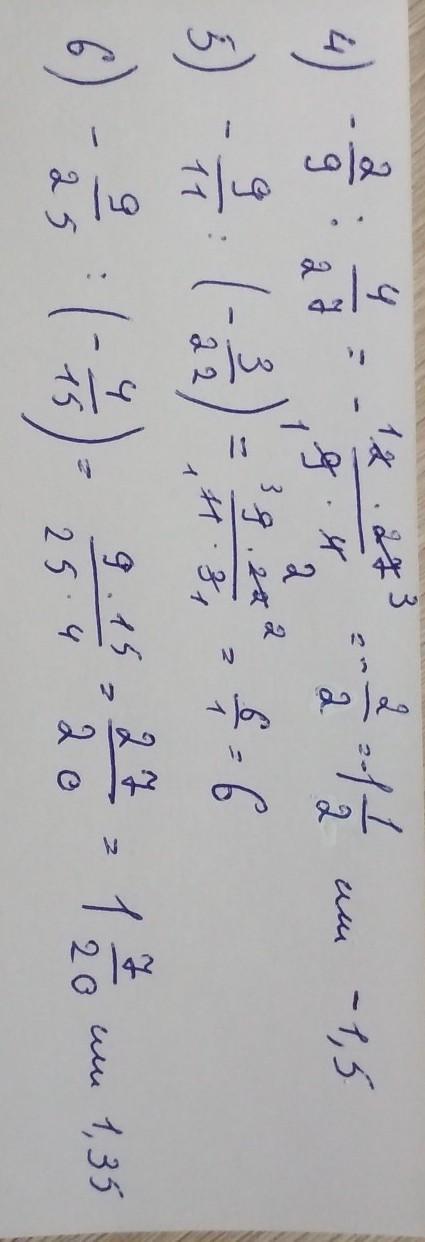 4) -2/9 : 4/27 = - 2·27/9·4 = -2/2 = -1 1/2 или -1,5
5) -9/11 : (-3/22) = 9·22/11·3 = 6/1 = 6
6) -9/25 : (-4/15) = 9·15/25·4 = 27/20 = 1 7/20 или 1,35